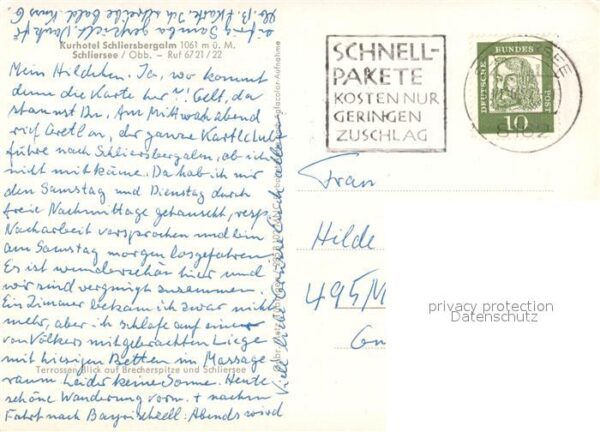 Kurhotel Schliersbergalm 1061 m ü. M.
Schliersee / Obb. - Ruf 67 21 / 22
Mein Hildchen. Ja, wo kommt
denn die Karte her?! Gelt, da
staunst Du. Am Mittwoch abend
rief Gretlon, der ganze Kartclub
führe nach Schliersbergalm, ob ich
nicht mitkäme. Da hab ich mir
den Samstag und Dienstag durch
freie Nachmittage getauscht, resp.
Nacharbeit versprochen und bin
am Samstag morgen losgefahren.
Es ist wunderschön hier und
wir sind vergnügt zusammen.
Ein Zimmer bekam ich zwar nicht
mehr, aber ich schlafe auf einer
von Völkers mitgebrachten Liege
mit hiesigen Betten im Massage
raum. Leider keine Sonne. Heute
Terrassen-Blick auf Brecherspitze und Schliersee
schöne Wanderung vorm. + nachm.
Fahrt nach Bayrischzell. Abends wird
Viele liebe Grüsse Euch allen
SCHNELL-
PAKETE
KOSTEN NUR
GERINGEN
ZUSCHLAG
DEUTSCHE BUNDESPOST
10
8162
Frau
Hilde
495/M
privacy protection
Datenschutz